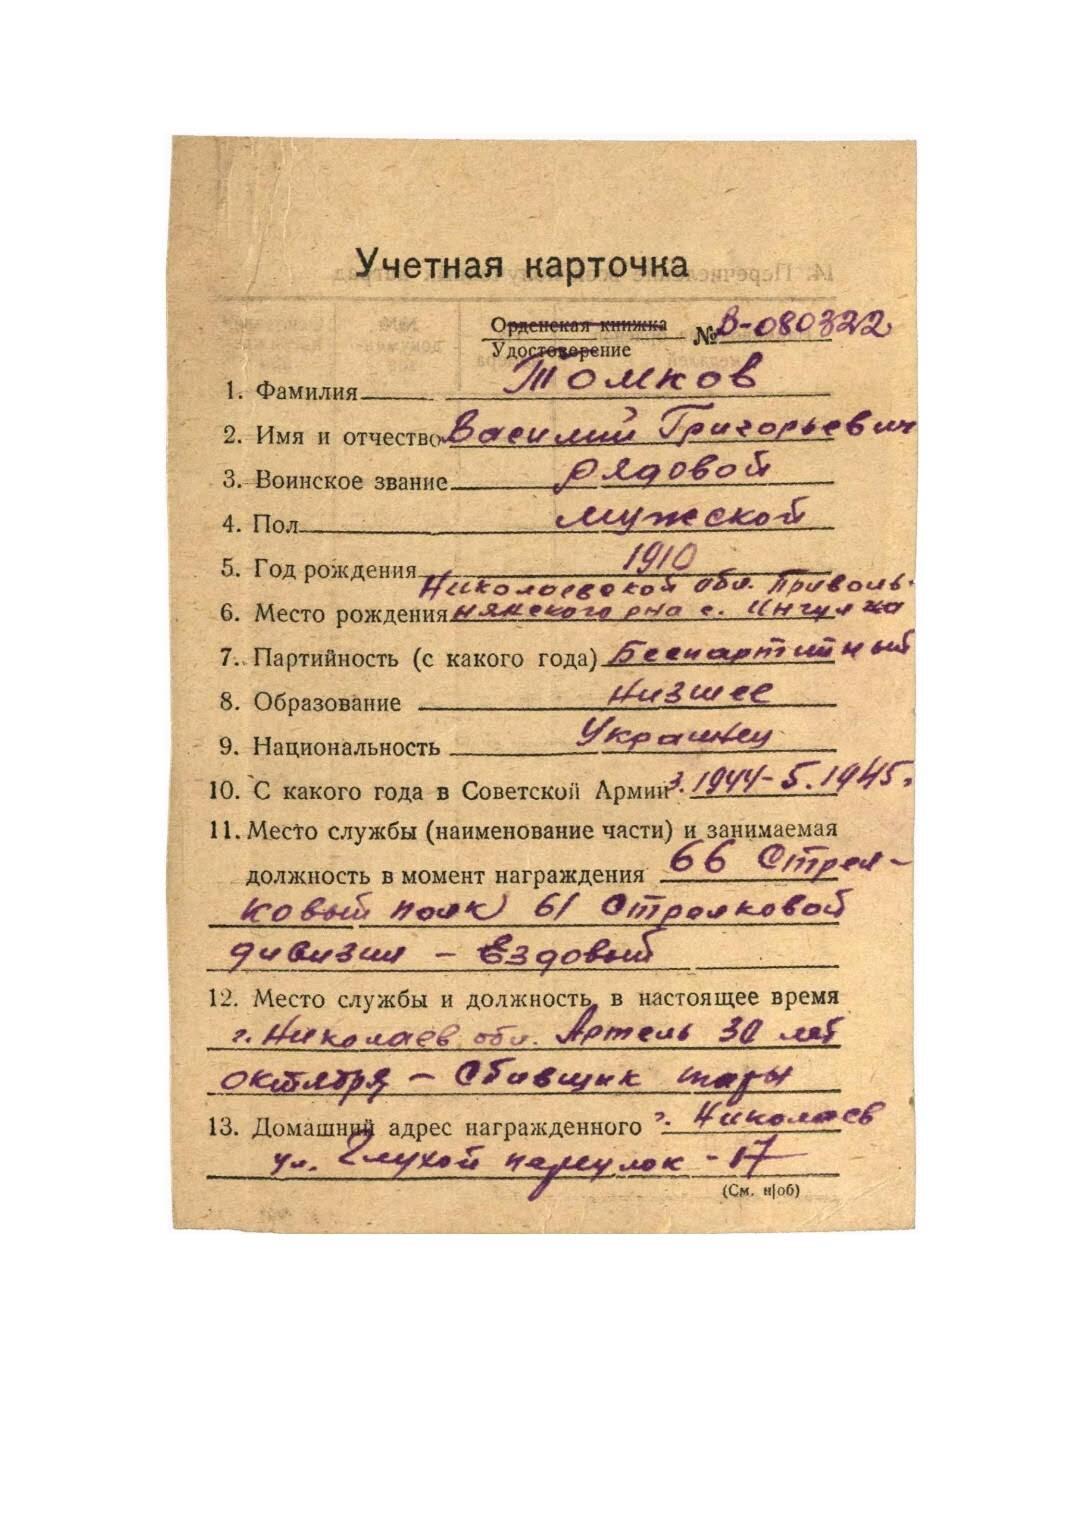 Учетная карточка
Орденская книжка
Удостоверение № В-080322
1. Фамилия Томков
2. Имя и отчество Василий Григорьевич
3. Воинское звание рядовой
4. Пол мужской
5. Год рождения 1910
Николаевской обл. Приволь-
6. Место рождения нянского рна с. Ингулка
7. Партийность (с какого года) Беспартийный
8. Образование Низшее
9. Национальность Украинец
10. С какого года в Советской Армии 3.1944-5.1945г
11. Место службы (наименование части) и занимаемая
должность в момент награждения 66 Стрел-
ковый полк 61 Стрелковой
дивизии - Ездовый
12. Место службы и должность в настоящее время
г. Николаев обл. Артель 30 лет
октября - Сбивщик тары
13. Домашний адрес награжденного г. Николаев
ул. Глухой переулок - 17
(См. н/об)